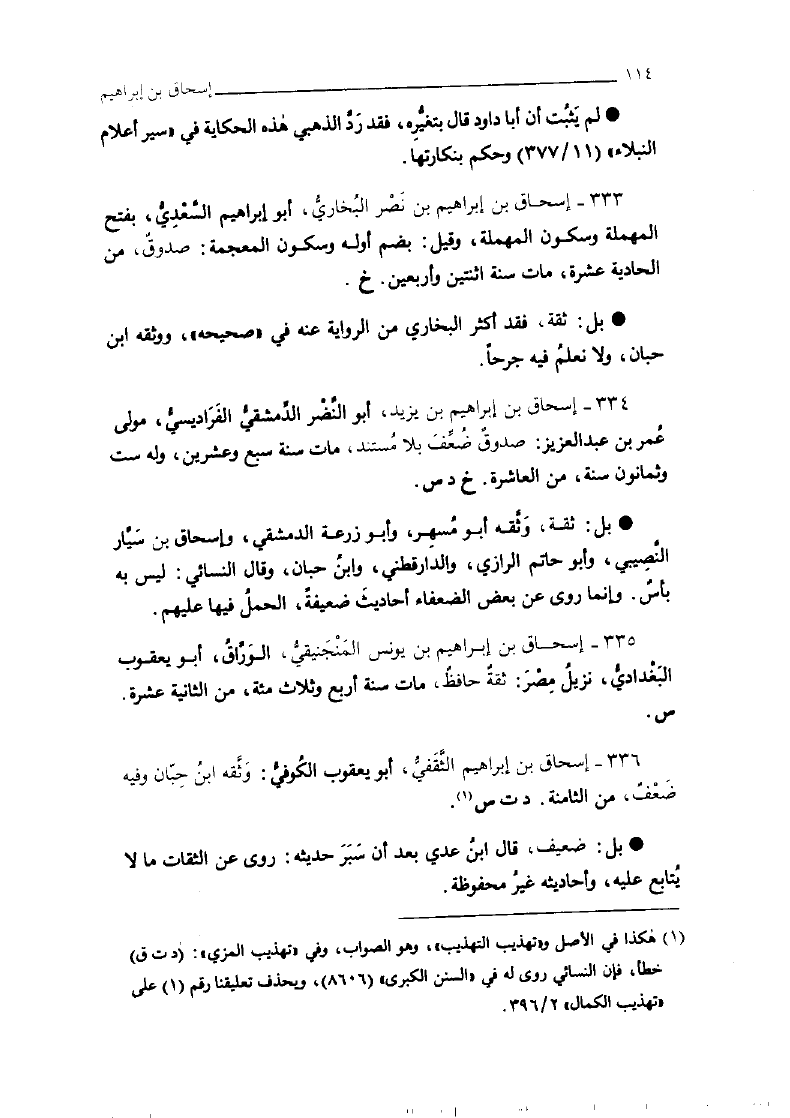 ١١٤ إسحاق بن إبراهيم
● لم يَثبُت أن أبا داود قال بتغيُّره، فقد رَدَّ الذهبي هٰذه الحكاية في «سير أعلام
النبلاء» (٣٧٧/١١) وحكم بنكارتها.
٣٣٣ ـ إسحـاق بن إبراهيم بن نَصْر البُخاريُّ، أبو إبراهيم السَّعْدِيُّ، بفتح
المهملة وسكـون المهملة، وقيل: بضم أولـه وسكـون المعجمة: صدوقٌ، من
الحادية عشرة، مات سنة اثنتين وأربعين. خ .
● بل: ثقة، فقد أكثر البخاري من الرواية عنه في «صحيحه»، ووثقه ابن
حبان، ولا نعلمُ فيه جرحاً.
٣٣٤ ـ إسحاق بن إبراهيم بن يزيد، أبو النَّضْر الدِّمشقيُّ الفَرَاديسيُّ، مولى
عُمر بن عبدالعزيز: صدوقٌ ضُعِّفَ بلا مُستند، مات سنة سبع وعشرين، وله ست
وثمانون سنة، من العاشرة. خ د ص.
● بل: ثقـة، وَثَّقـه أبـو مُسهِر، وأبـو زرعـة الدمشقي، وإسحاق بن سَيَّار
النَّصِيبي، وأبو حاتم الرازي، والدارقطني، وابنُ حبان، وقال النسائي: ليس به
بأسٌ. وإنما روى عن بعض الضعفاء أحاديثَ ضعيفةً، الحملُ فيها عليهم.
٣٣٥ ـ إسحـاق بن إبـراهيم بن يونس المَنْجَنيقيُّ، الـوَرَّاقُ، أبـو يعقـوب
البَغْداديُّ، نزيلُ مِصْرَ: ثقةٌ حافظٌ، مات سنة أربع وثلاث مئة، من الثانية عشرة.
ص.
٣٣٦ ـ إسحاق بن إبراهيم الثَّقَفيُّ، أبو يعقوب الكُوفيُّ: وَثَّقه ابنُ حِبّان وفيه
ضَعْفٌ، من الثامنة. د ت ص(١).
● بل: ضعيف، قال ابنُ عدي بعد أن سَبَرَ حديثه: روى عن الثقات ما لا
يُتابع عليه، وأحاديثه غيرُ محفوظة.
(١) هٰكذا في الأصل و«تهذيب التهذيب»، وهو الصواب، وفي «تهذيب المزي»: (د ت ق)
خطأ، فإن النسائي روى له في «السنن الكبرى» (٨٦٠٦)، ويحذف تعليقنا رقم (١) على
«تهذيب الكمال» ٣٩٦/٢.